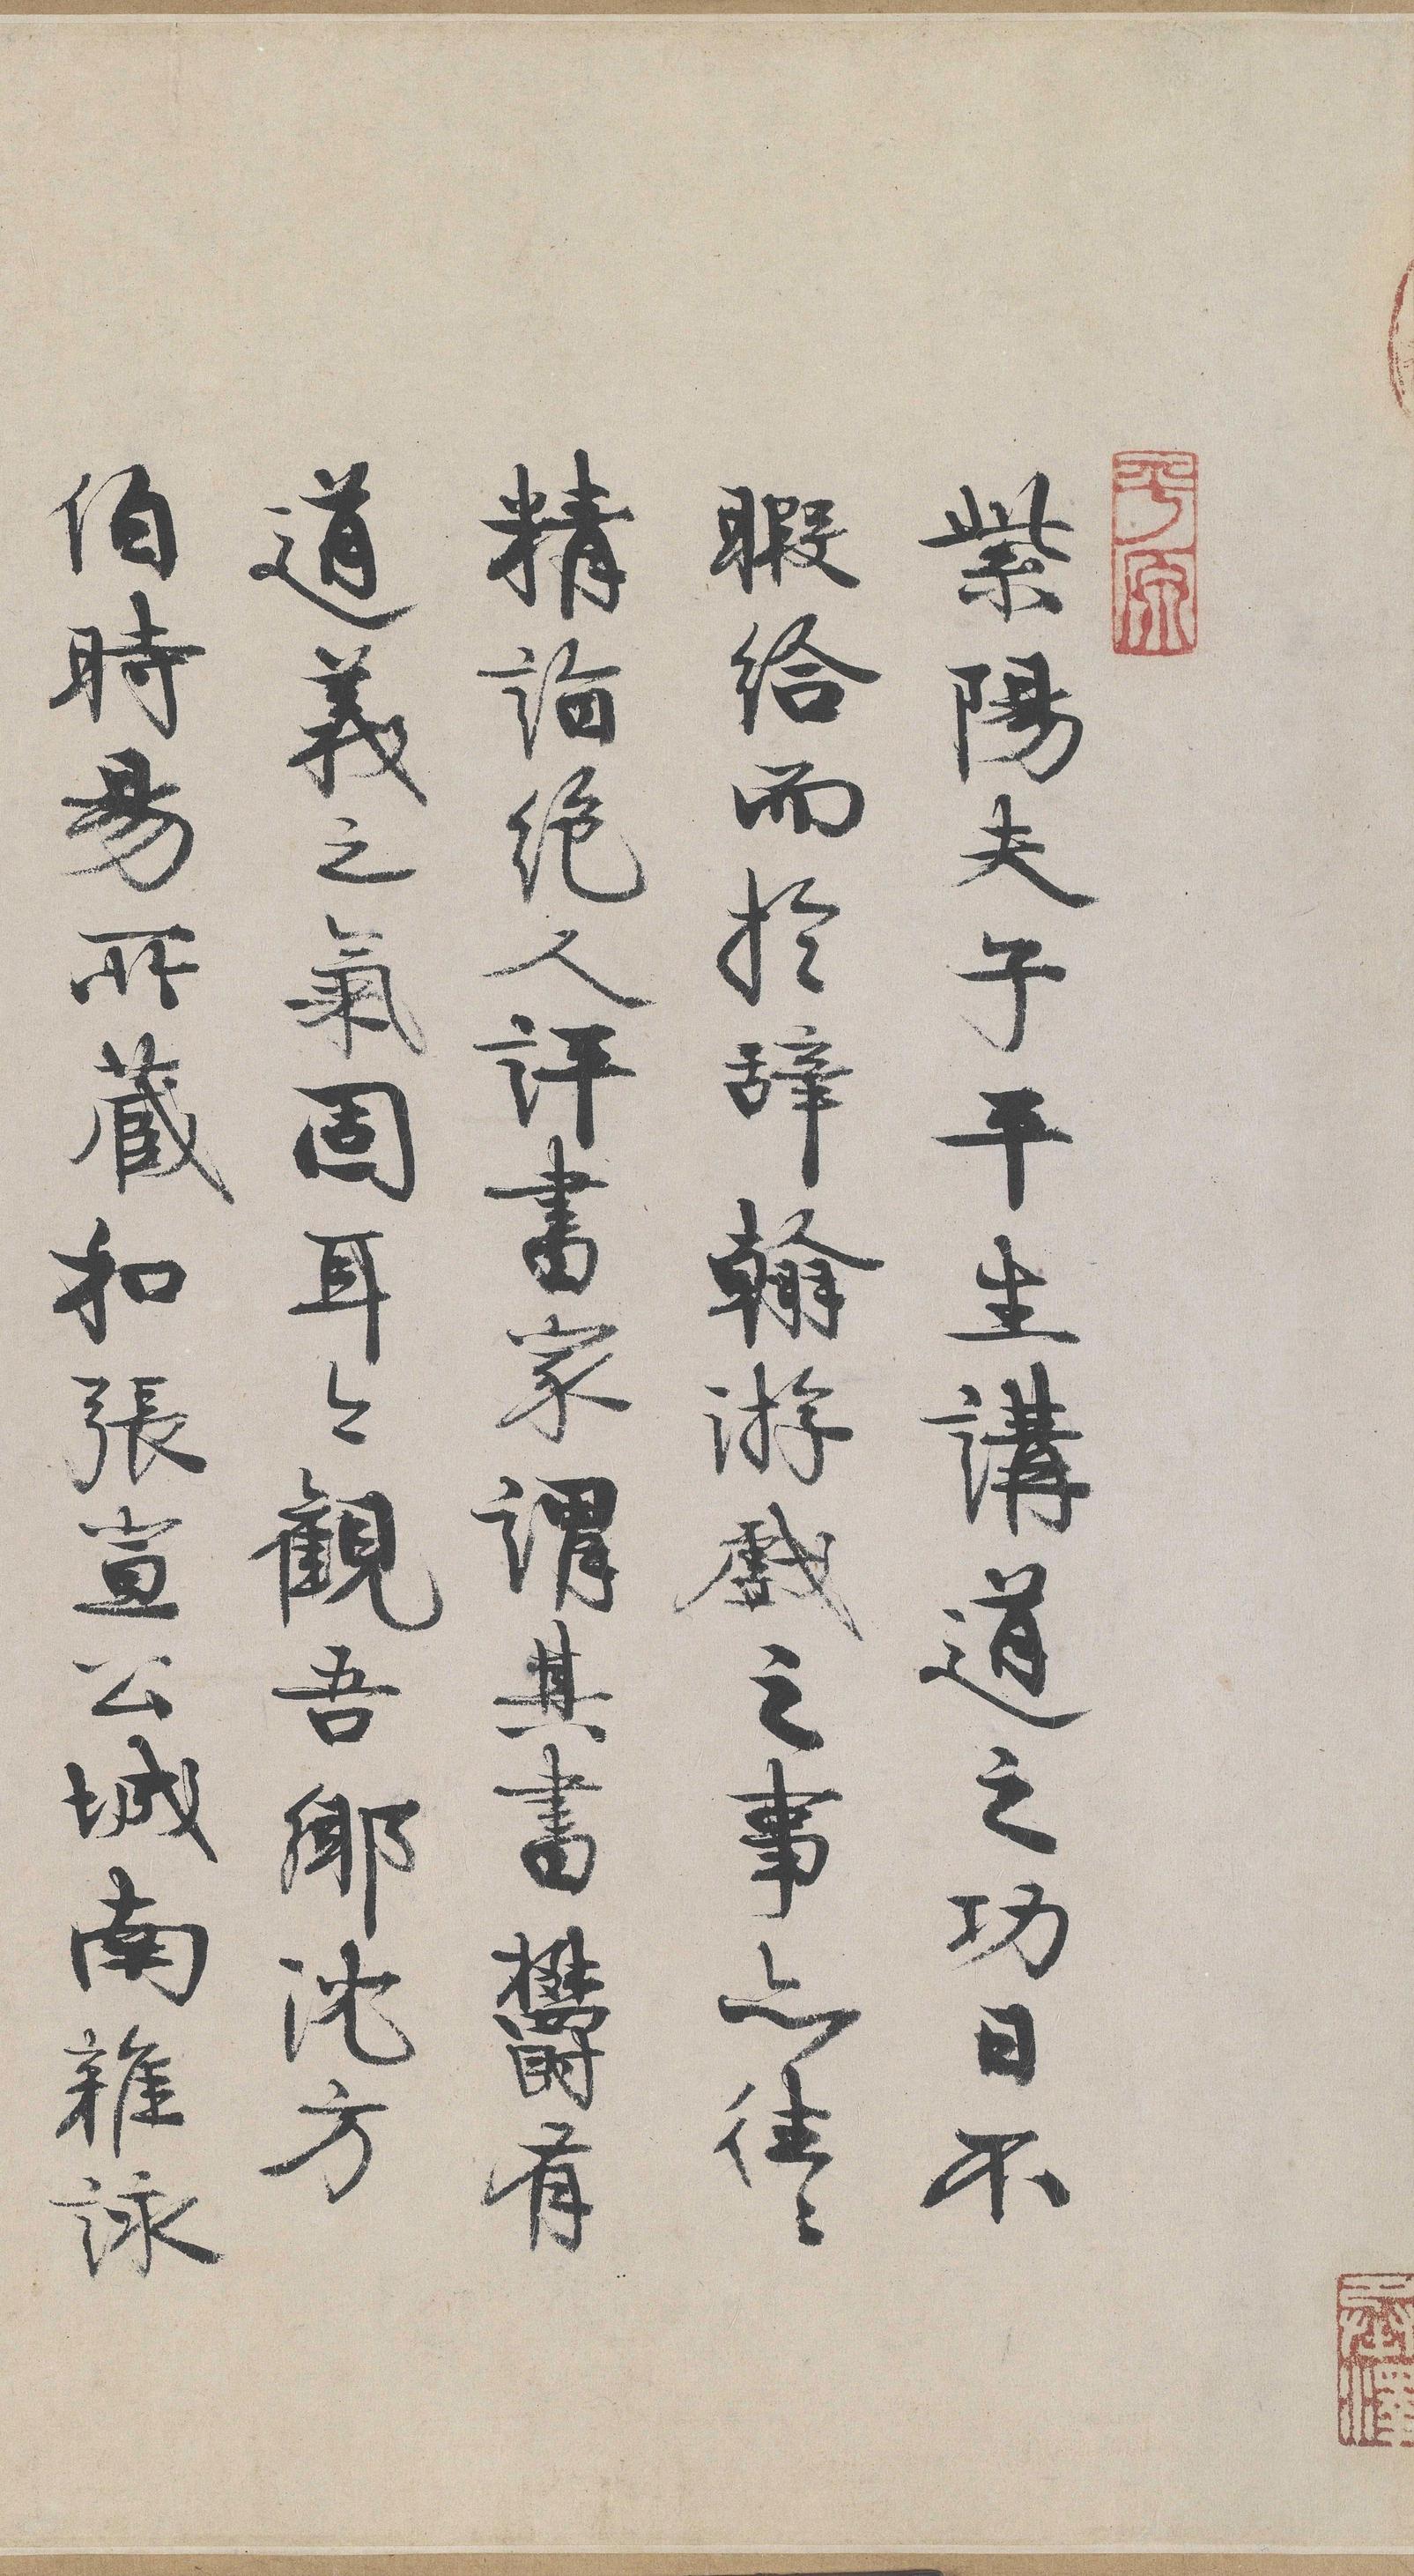 平原
紫陽夫子平生講道之功日不
暇給而於辭翰游戲之事亦往〻
精詣絕人評書家謂其書欝有
道義之氣固耳今觀吾鄉沈方
伯時昜所藏和張宣公城南雜詠